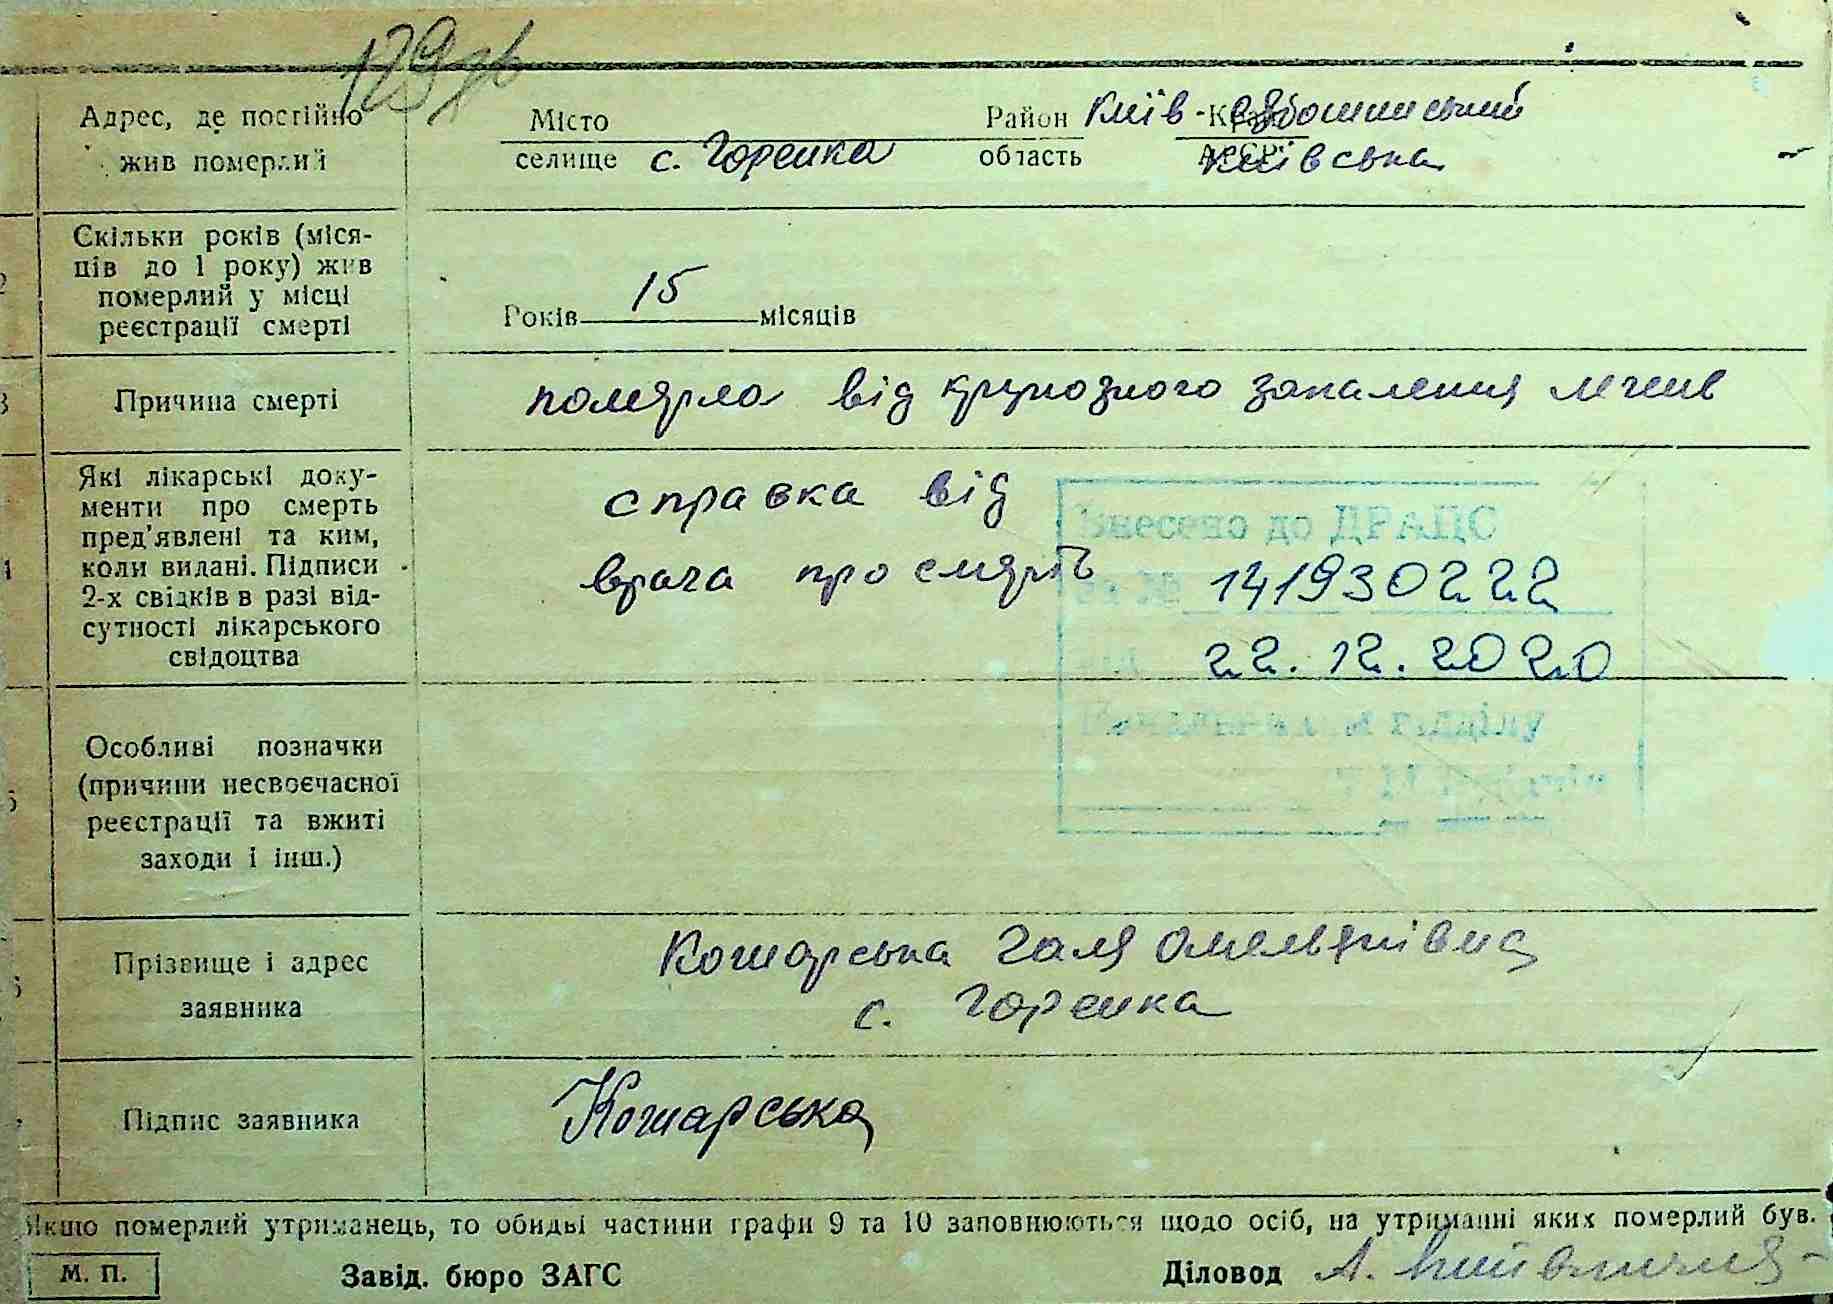 179
Адрес, де постійно
жив померлий
Місто
селище с. Горенка
Район Київ-Святошинський Край
область Київська АРСР
Скільки років (міся-
ців до 1 року) жив
померлий у місці
реєстрації смерті
Років 15 місяців
Причина смерті
помярла від крупозного запалення легенів
Які лікарські доку-
менти про смерть
пред'явлені та ким,
коли видані. Підписи
2-х свідків в разі від-
сутності лікарського
свідоцтва
справка від
врача про смярть
Внесено до ДРАЦС
за № 141930222
від 22.12.2020
Начальник відділу
Особливі позначки
(причини несвоєчасної
реєстрації та вжиті
заходи і інш.)
Прізвище і адрес
заявника
Кошарська Галя Омельянівна
с. Горенка
Підпис заявника
Кошарська
Якщо померлий утриманець, то обидві частини графи 9 та 10 заповнюються щодо осіб, на утриманні яких померлий був.
М. П.
Завід. бюро ЗАГС
Діловод А.